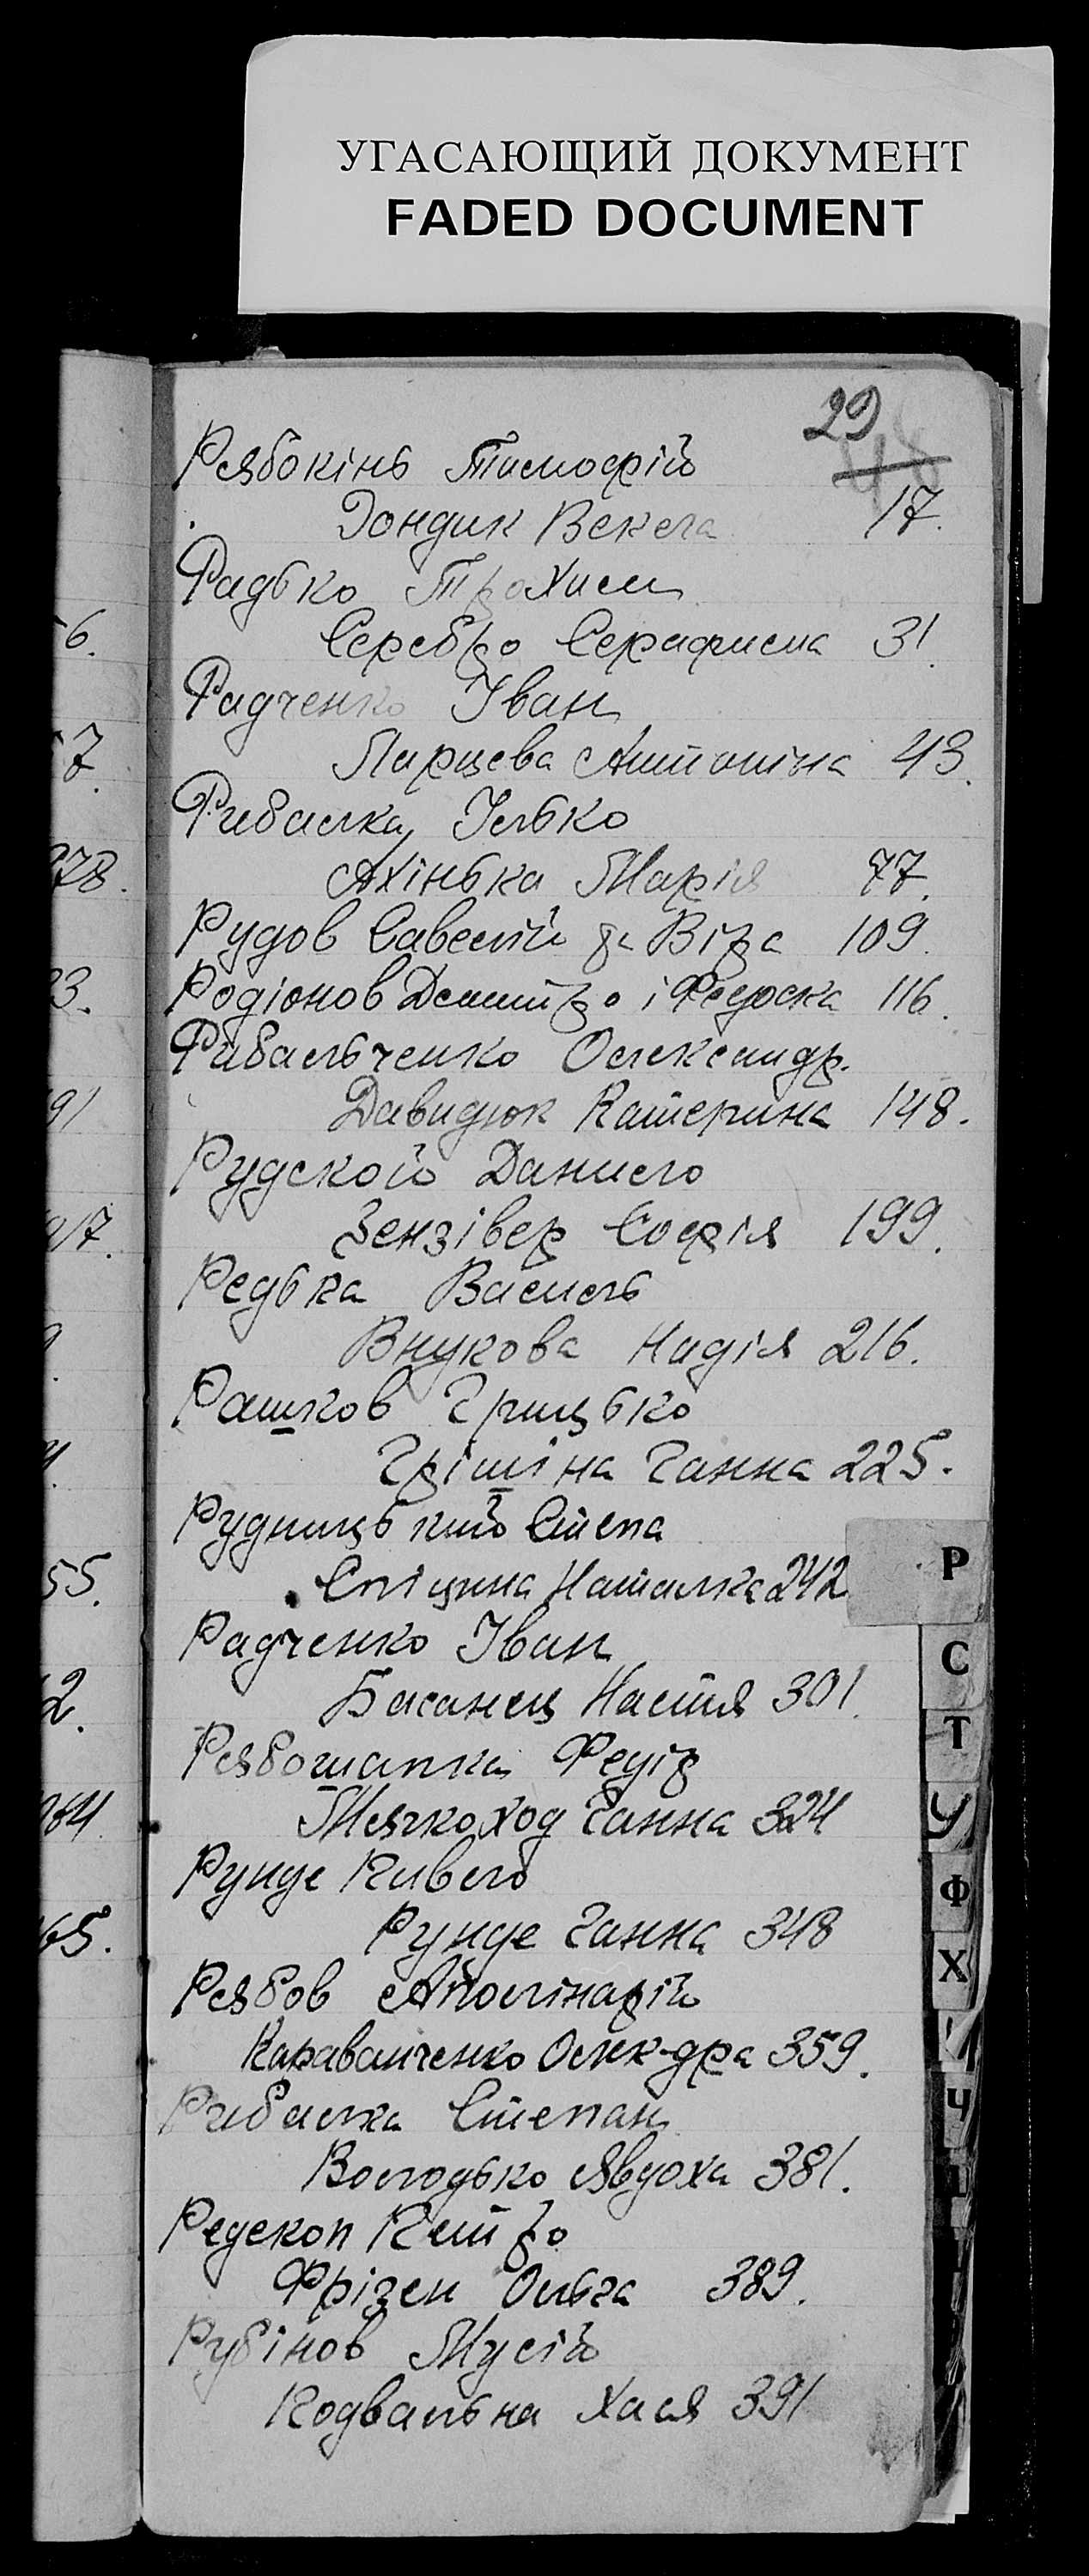 УГАСАЮЩИЙ ДОКУМЕНТ
FADED DOCUMENT
29
Рябокінь Тимофій
Дондик Векла 17.
Радько Трохим
Серебро Серафима 31.
Радченко Іван
Пирцева Антоніна 43.
Рибалка Ілько
Ахінька Марія 77.
Рудов Савелій та Віра 109.
Родіонов Дмитро і Федоска 116.
Рибальченко Олександр.
Давидюк Катерина 148.
Рудской Данило
Зензівер Софія 199.
Редька Василь
Внукова Надія 216.
Рашков Грицько
Грішіна Ганна 225.
Рудницький Степа
Спіцина Наталка 242
Радченко Іван
Басанец Настя 301.
Рябошапка Федір
Мягкоход Ганна 324
Рунде Кивело
Рунде Ганна 348
Рябов Аполінарій
Караванченко Олек-дра 359.
Рибалка Степан
Володько Явдоха 381.
Редекоп Петро
Фрізен Ольга 389.
Рубінов Мусій
Кодвальна Хася 391
6.
7.
78.
3.
91
17.
55.
2.
64
65.
Р
С
Т
У
Ф
Х
Ч